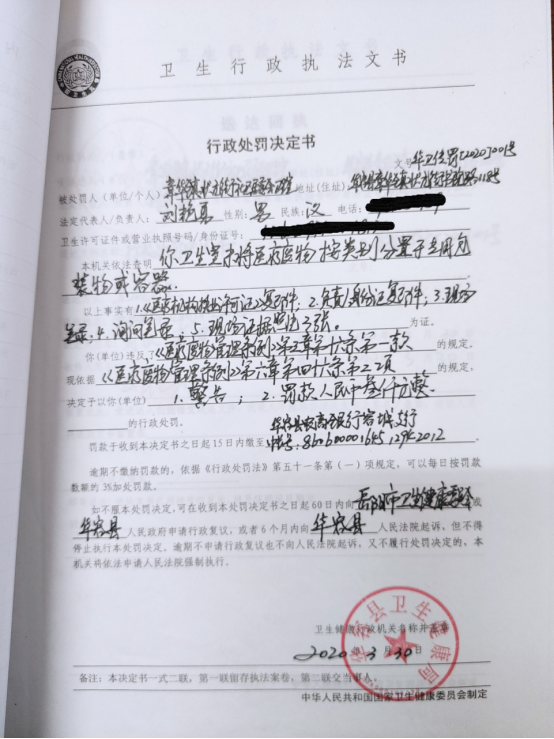 卫生行政执法文书
行政处罚决定书
文号 华卫传罚[2020]001号
被处罚人(单位/个人) 地址(住址)
法定代表人/负责人: 性别:男 民族:汉 电话:
卫生许可证件或营业执照号码/身份证号:
本机关依法查明 你卫生室未将医疗废物按类别分置于专用包
装物或容器。
以上事实有 1.《医疗机构执业许可证》复印件;2.负责人身份证复印件;3.现场
笔录;4.询问笔录;5.现场证据照片3张。 为证。
你(单位)违反了《医疗废物管理条例》第三章第十六条第一款 的规定,
现依据《医疗废物管理条例》第六章第四十六条第2项 的规定,
决定予以你(单位) 1.警告;2.罚款人民币叁仟元整
的行政处罚。 华容县农商银行容城支行
罚款于收到本决定书之日起15日内缴至
逾期不缴纳罚款的,依据《行政处罚法》第五十一条第(一)项规定,可以每日按罚款
数额的3%加处罚款。
如不服本处罚决定,可在收到本处罚决定书之日起60日内向 岳阳市卫生健康委 或
华容县 人民政府申请行政复议,或者6个月内向 华容县 人民法院起诉,但不得
停止执行本处罚决定。逾期不申请行政复议也不向人民法院起诉,又不履行处罚决定的,本
机关将依法申请人民法院强制执行。
华容县卫生健康局
卫生健康行政机关名称并盖章
2020年3月30日
备注:本决定书一式二联,第一联留存执法案卷,第二联交当事人。
中华人民共和国国家卫生健康委员会制定